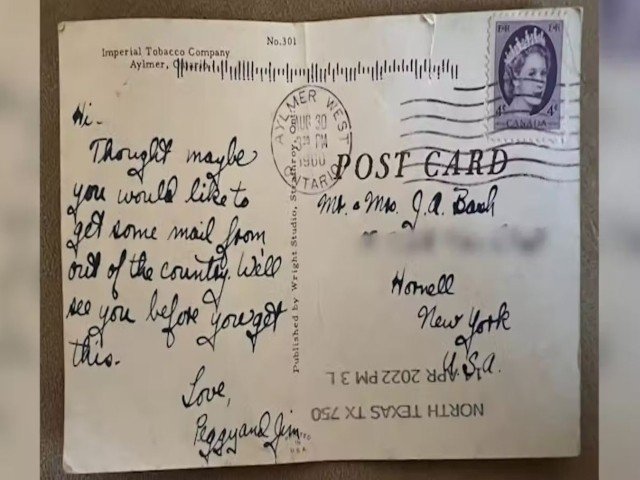 No.301
Imperial Tobacco Company
Aylmer, Ontario
Hi -
Thought maybe
you would like to
get some mail from
out of the country. We'll
see you before you get
this.
Love,
Peggy and Jim
Published by Wright Studio, Strathroy, Ont.
AYLMER WEST
30
PM
ONTARIO
4¢ 4¢
CANADA
POST CARD
Mr. & Mrs. J. A. Bash
Hornell
New York
U.S.A.
NORTH TEXAS TX 750
APR 2022 PM 3 L
U.S.A.